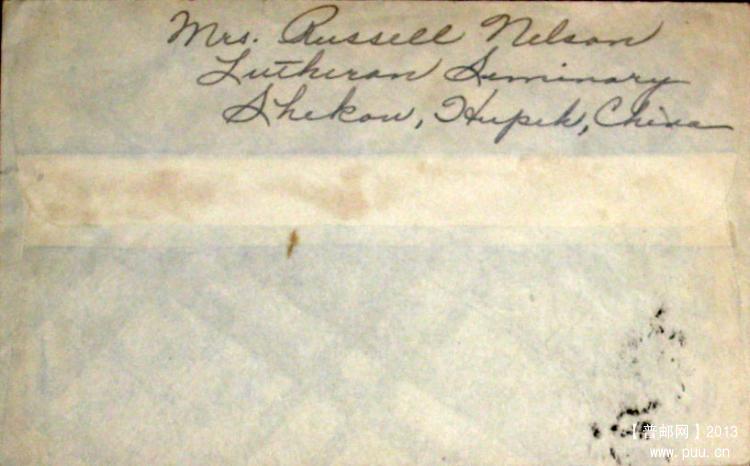 Mrs. Russell Nelson
Lutheran Seminary
Shekow, Hupeh, China
【普邮网】2013
www.puu.cn